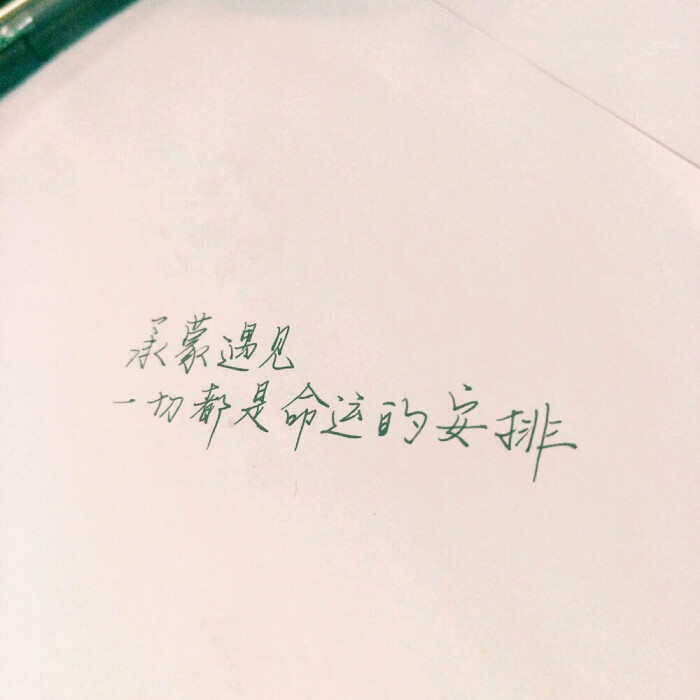 承蒙遇见
一切都是命运的安排